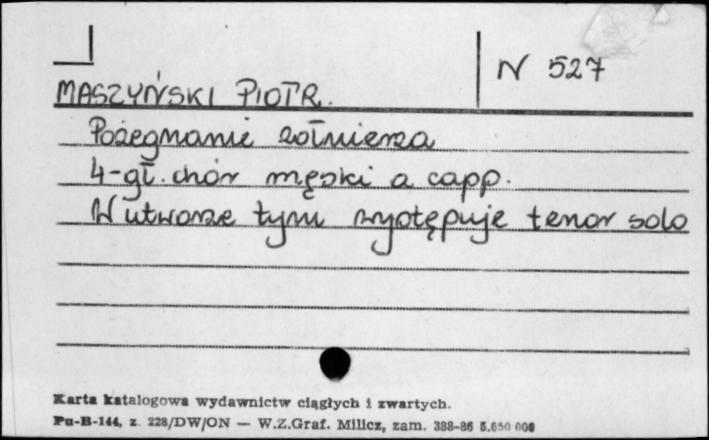 N 527
MASZYŃSKI PIOTR.
Pożegnanie żołnierza
4-gł. chór męski a capp.
W utworze tym występuje tenor solo
Karta katalogowa wydawnictw ciągłych i zwartych.
Pu-B-144, z. 228/DW/ON — W.Z.Graf. Milicz, zam. 388-86 5.650 000